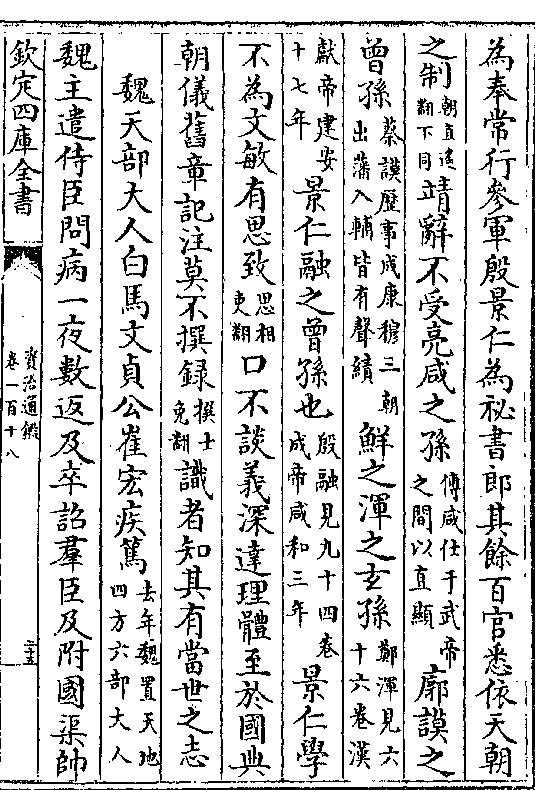 為奉常行參軍殷景仁為祕書郎其餘百官悉依天朝
之制朝直遥翻下同靖辭不受亮咸之孫傅咸仕于武帝之間以直顯廓謨之
曾孫蔡謨歷事成康穆三朝出藩入輔皆有聲績鮮之渾之玄孫鄭渾見六十六卷漢
獻帝建安十七年景仁融之曾孫也殷融見九十四卷成帝咸和三年景仁學
不為文敏有思致思相吏翻口不談義深達理體至於國典
朝儀舊章記注莫不撰録撰士免翻識者知其有當世之志
魏天部大人白馬文貞公崔宏疾篤去年魏置天地四方六部大人
魏主遣侍臣問病一夜數返及卒詔羣臣及附國渠帥
欽定四庫全書
資治通鑑
卷一百十八
三十五